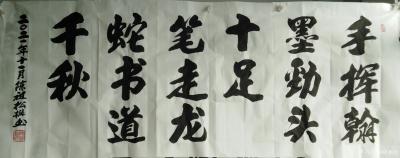 手挥翰
墨劲头
十足
笔走龙
蛇书道
千秋
二〇二一年十一月徐祖松书